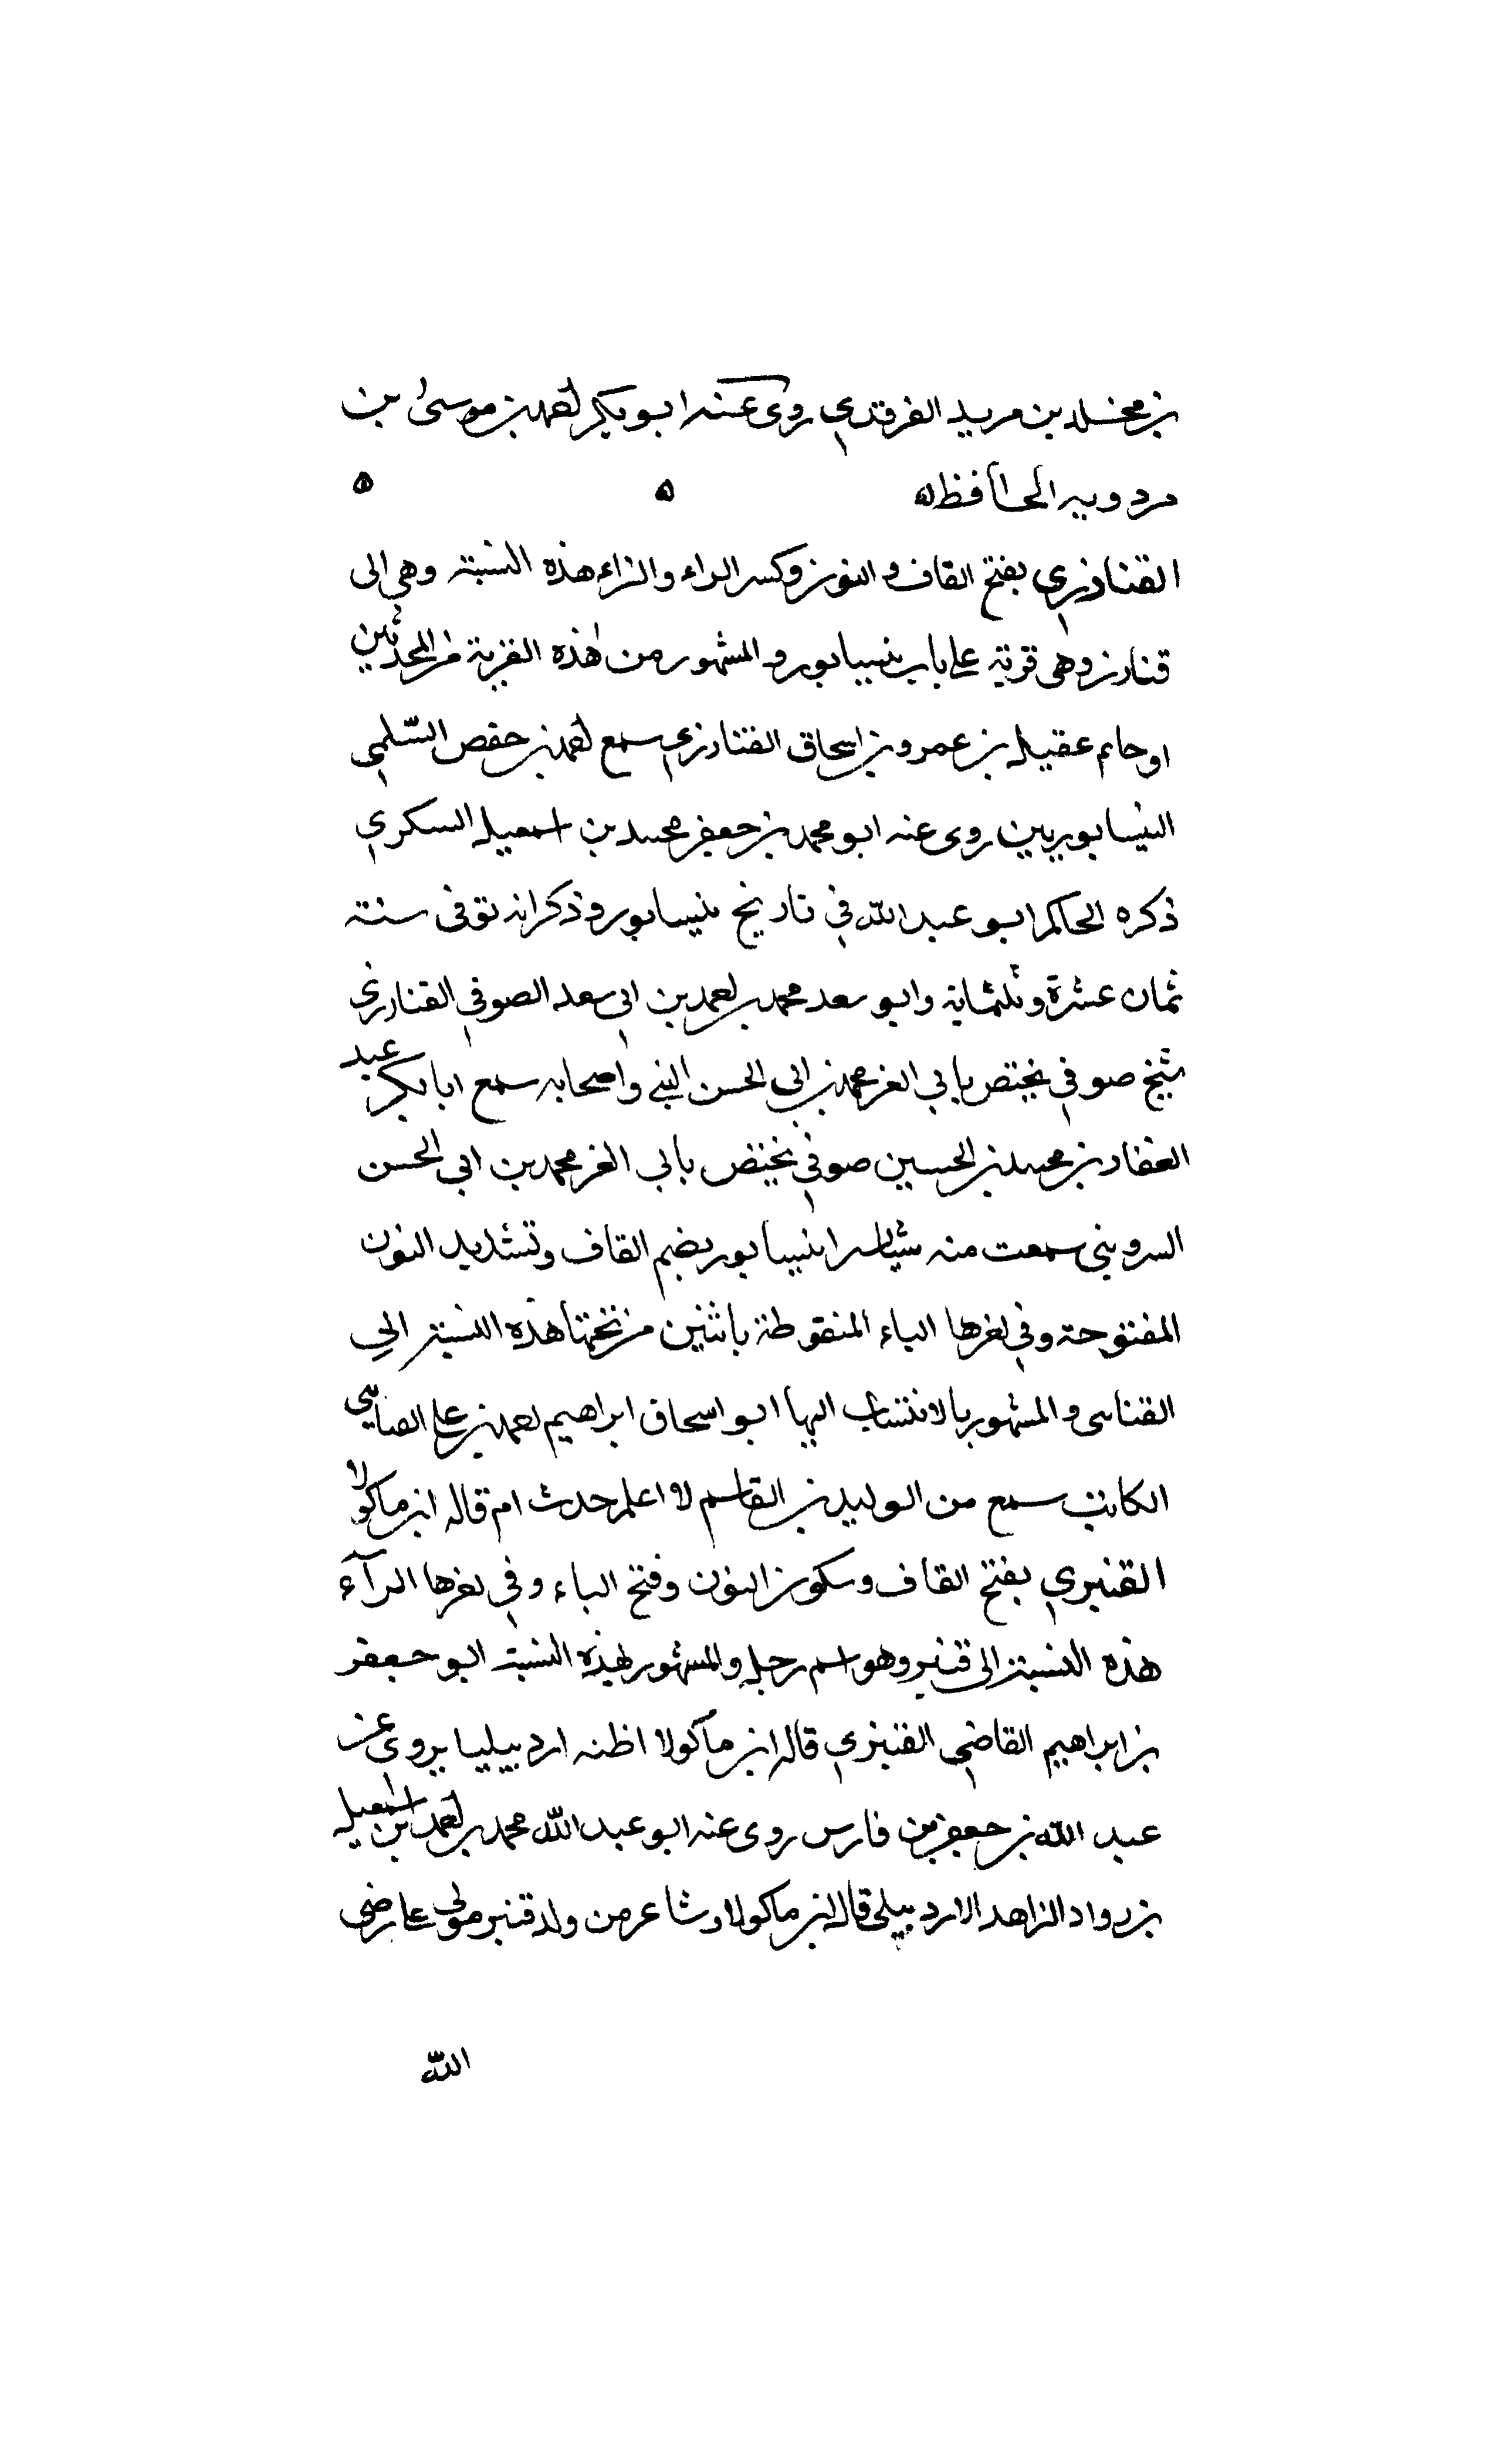 بن مخلد بن مريد الفرقدي روى عنه ابو بكر احمد بن موسى بن
مردويه الحافظ ه ه ه
القنارزي بفتح القاف والنون وكسر الراء والزاء هذه النسبة وهي الى
قنارز وهي قرية على باب نيسابور والمشهور من هذه القرية من المحدثين
او حاتم عقيل بن عمرو بن اسحاق القنارزي سمع احمد بن حفص السلمي
النيسابوريين روى عنه ابو محمد بن جعفر محمد بن اسمعيل السكري
ذكره الحاكم ابو عبد الله في تاريخ نيسابور وذكر انه توفى سنة
ثمان عشرة وثلثماية وابو سعد محمد بن احمد بن ابي سعد الصوفي القنارزي
شيخ صوفي يختص بابي العز محمد بن ابي الحسن واصحابه سمع ابا بكر عبد
الغفار بن محمد بن الحسين صوفي يختص بابي العز محمد بن ابي الحسن
سمعت منه شيا يسيرا بنيسابور بضم القاف وتشديد النون
المفتوحة وفي اخرها الباء المنقوطة باثنين من تحتها هذه النسبة الى
القنابى والمشهور بالانتساب اليها ابو اسحاق ابراهيم احمد بن علي القنابي
الكاتب سمع من الوليد بن القاسم لا اعلم حدث ام قاله ابن ماكولا
القنبري بفتح القاف وسكون النون وفتح الباء وفي اخرها الرآء
هذه النسبة الى قنبر وهو اسم رجل والمشهور بهذه النسبة ابو جعفر
بن ابراهيم القاضي القنبري قاله ابن ماكولا اظنه اردبيليا يروى عن
عبد الله بن جعفر بن فارس روى عنه ابو عبد الله محمد بن احمد بن اسمعيل
بن رواد الزاهد الاردبيلي قاله ابن ماكولا وشاعر من ولد قنبر مولى على رضى
الله